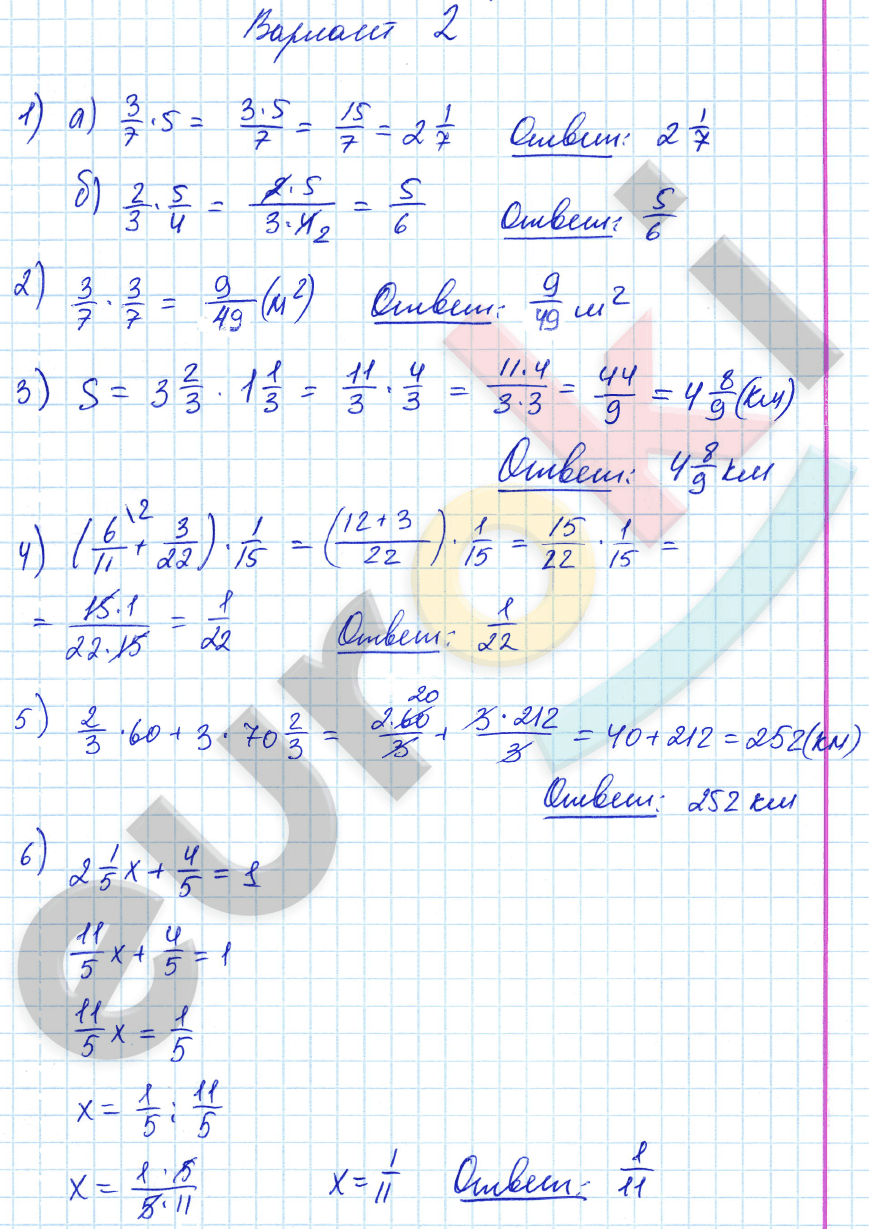 Вариант 2
1) а) 3/7 · 5 = 3·5/7 = 15/7 = 2 1/7 Ответ: 2 1/7
б) 2/3 · 5/4 = 2·5/3·4 2 = 5/6 Ответ: 5/6
2) 3/7 · 3/7 = 9/49 (м²) Ответ: 9/49 м²
3) S = 3 2/3 · 1 1/3 = 11/3 · 4/3 = 11·4/3·3 = 44/9 = 4 8/9 (км)
Ответ: 4 8/9 км
4) (6/11 \2 + 3/22) · 1/15 = (12+3/22) · 1/15 = 15/22 · 1/15 =
= 15·1/22·15 = 1/22 Ответ: 1/22
5) 2/3 · 60 + 3 · 70 2/3 = 2·60 20/3 + 3·212/3 = 40 + 212 = 252 (км)
Ответ: 252 км
6) 2 1/5 x + 4/5 = 1
11/5 x + 4/5 = 1
11/5 x = 1/5
x = 1/5 : 11/5
x = 1·5/5·11 x = 1/11 Ответ: 1/11
euroki